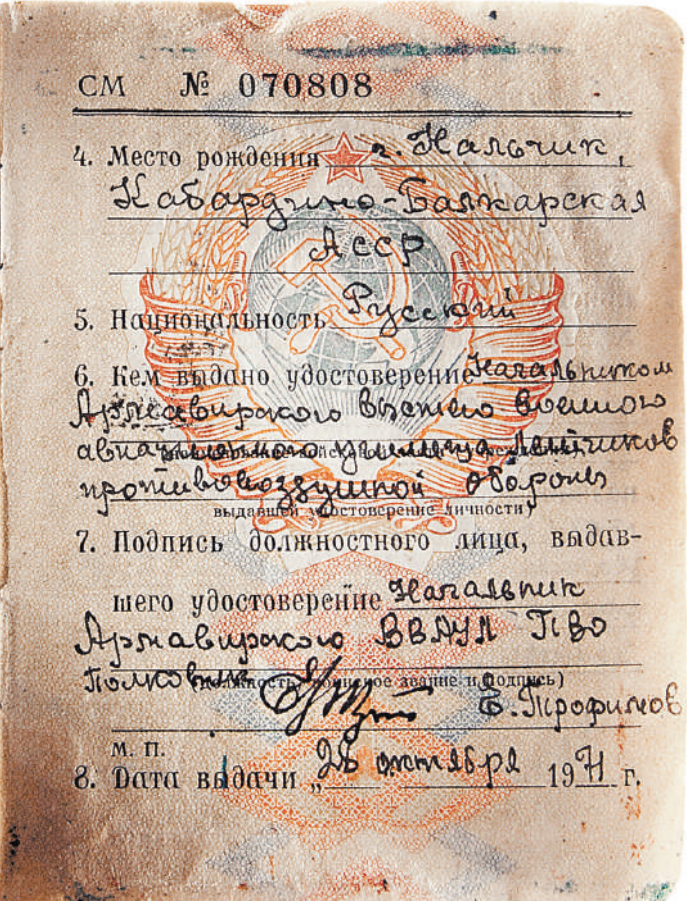 СМ № 070808
4. Место рождения г. Нальчик,
Кабардино-Балкарская
АССР
5. Национальность Русский
6. Кем выдано удостоверение Начальником
Армавирского высшего военного
авиационного училища летчиков
противовоздушной обороны
выдавшей удостоверение личности)
7. Подпись должностного лица, выдав-
шего удостоверение Начальник
Армавирского ВВАУЛ ПВО
полковник Е. Трофимов
(должность, воинское звание и подпись)
М. П.
8. Дата выдачи „ октября 1971 г.